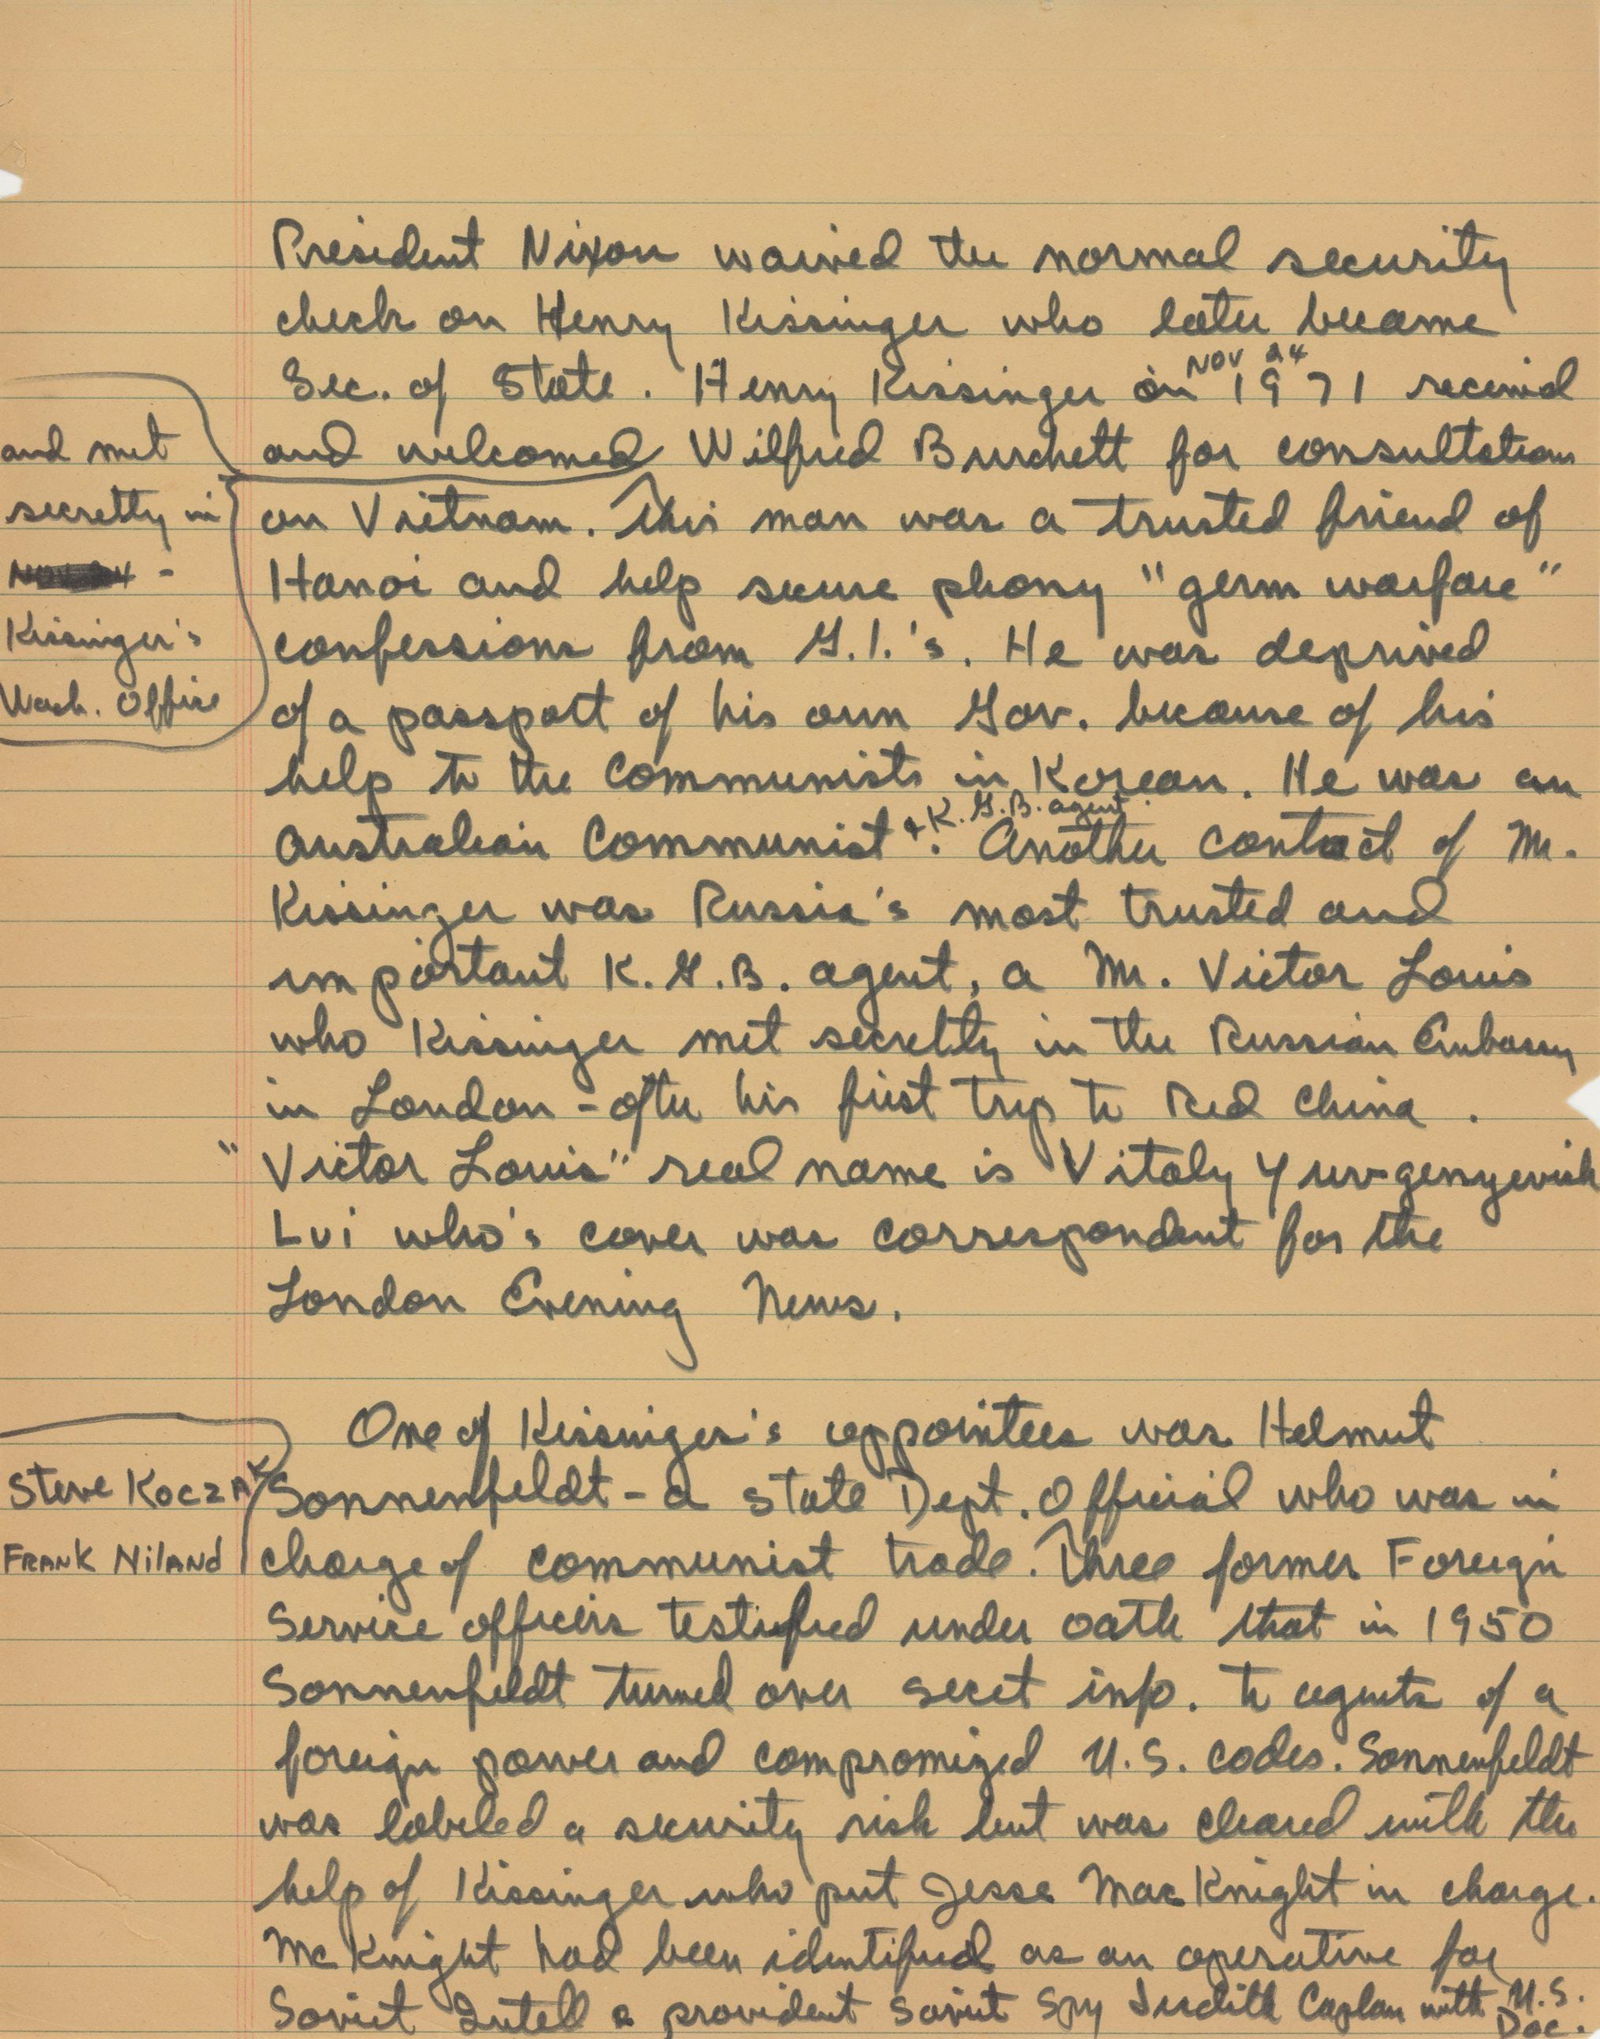 President Nixon waived the normal security
check on Henry Kissinger who later became
Sec. of State. Henry Kissinger on NOV 24 1971 received
and welcomed Wilfred Burchett for consultation
and met
secretly in
Kissinger's
Wash. Office
on Vietnam. This man was a trusted friend of
Hanoi and help secure phony "germ warfare"
confessions from G.I.'s. He was deprived
of a passport of his own Gov. because of his
help to the Communists in Korean. He was an
Australian Communist & K.G.B. agent. Another contact of Mr.
Kissinger was Russia's most trusted and
important K.G.B. agent, a Mr. Victor Louis
who Kissinger met secretly in the Russian Embassy
in London - after his first trip to Red China.
"Victor Louis" real name is Vitaly Yuv-genyevich
Lui who's cover was correspondent for the
London Evening News.
One of Kissinger's appointees was Helmut
Steve Koczak
Frank Niland
Sonnenfeldt - a State Dept. Official who was in
charge of communist trade. Three former Foreign
Service officers testified under oath that in 1950
Sonnenfeldt turned over secet info. to agents of a
foreign power and compromized U.S. codes. Sonnenfeldt
was labeled a security risk but was cleared with the
help of Kissinger who put Jesse MacKnight in charge.
McKnight had been identified as an operative for
Soviet Intell & provident Soviet Spy Judith Coplan with U.S.
Doc.